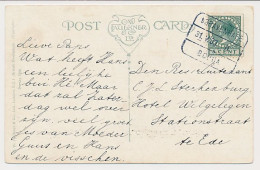 POST CARD
Lieve Pans
Wat heeft Hans
een leelijke
bui hé. Maar
dat zal Zater-
dag wel over
zijn. veel groet
jes van Moeder
Guus en Hans
en de visschen.
Den Res. Luitenant
C.J.L. Sterkenburg
Hotel Wilgeligen
Stationstraat
te Ede